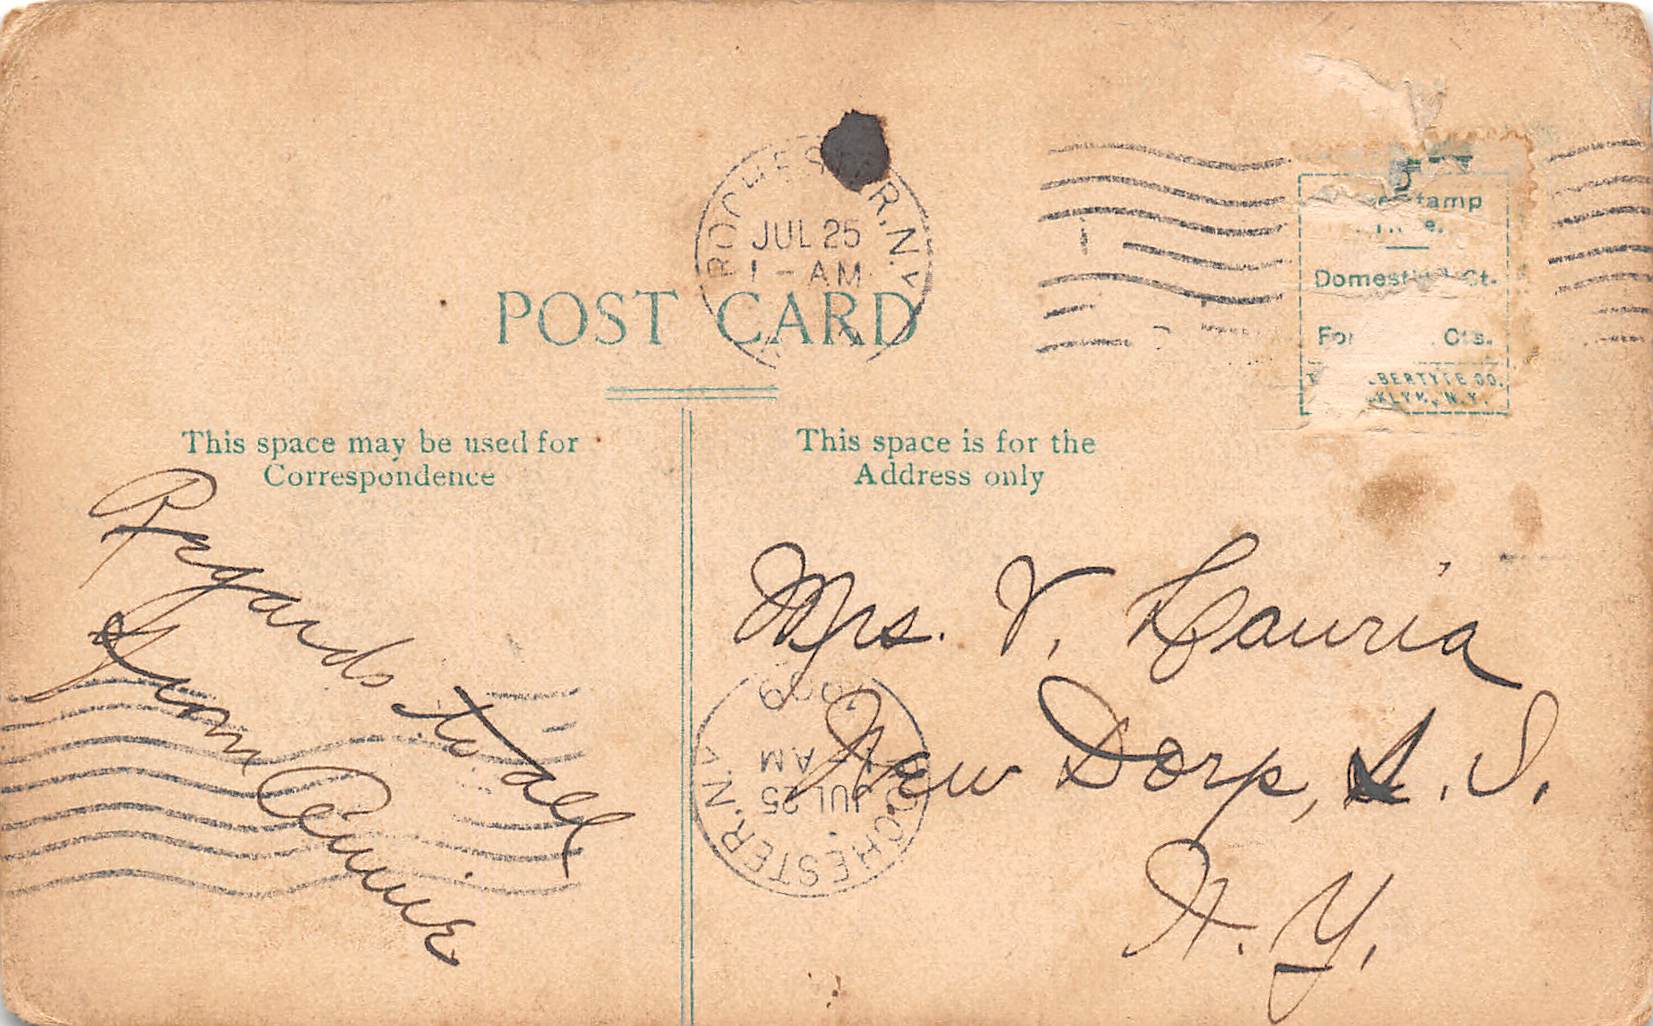 ROCHESTER, N.Y.
JUL 25
1 - AM
POST CARD
Stamp
Domestic Ct.
For Cts.
BERTYPE CO.
KLYN, N.Y.
This space may be used for
Correspondence
This space is for the
Address only
Regards to all
from Annie
Mrs. V. Lauria
New Dorp, S. I.
N. Y.
ROCHESTER, N.Y
JUL 25
1 - AM
1909